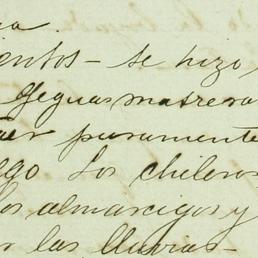 ientos - se hizo
Yeguas matreras
puramente
ego Los chileros
os almarcigos y
r las lluvias -